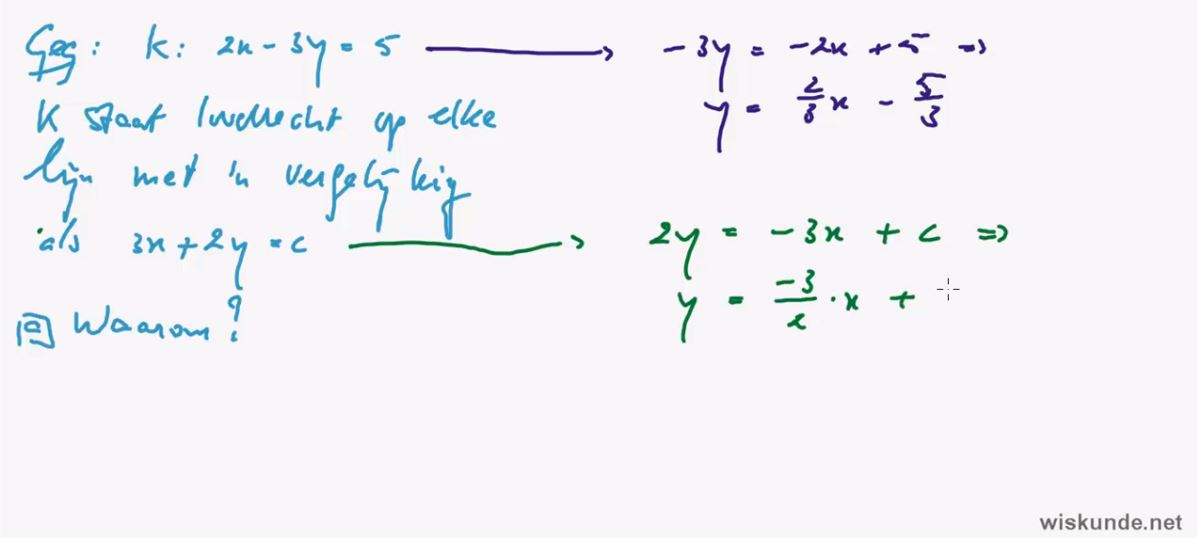 Geg: k: 2x - 3y = 5
-3y = -2x + 5 =>
y = 2/3 x - 5/3
K staat loodrecht op elke
lijn met 'n vergelijking
als 3x + 2y = c
2y = -3x + c =>
y = -3/2 · x +
Waarom?
wiskunde.net